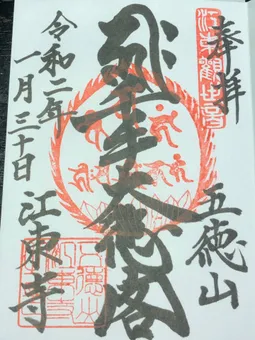 江東觀世音
奉拝
五徳山
千手大悲閣
令和二年
一月三十日
江東寺